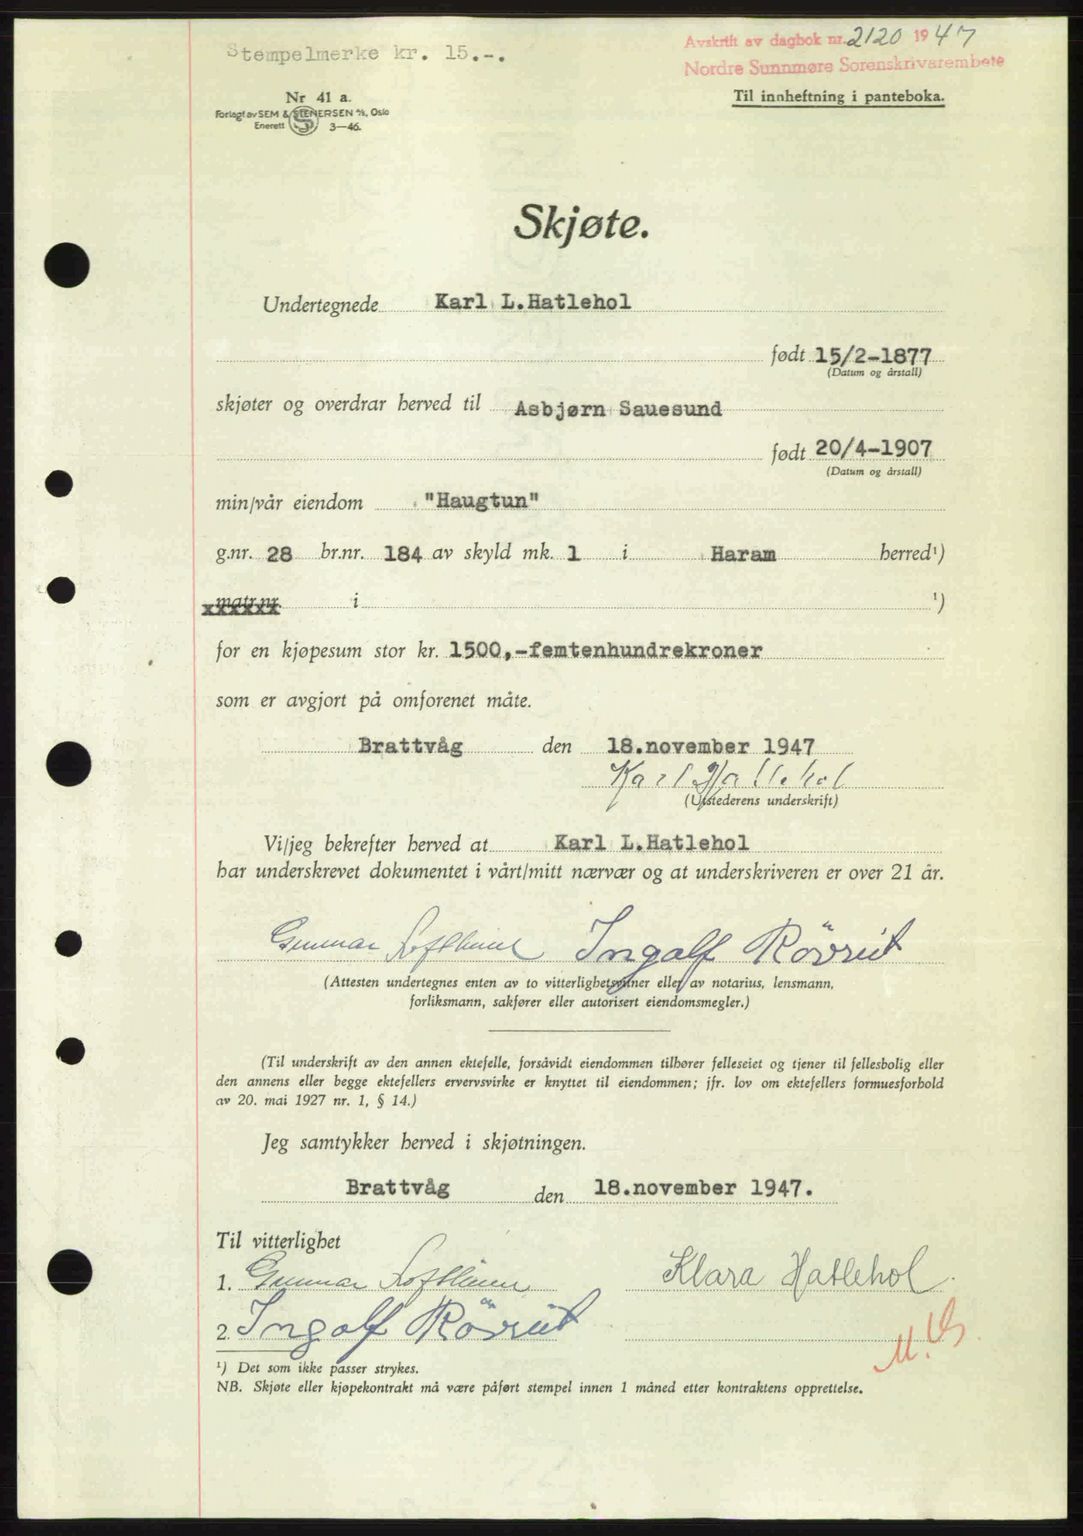 Stempelmerke kr. 15.-.
Avskrift av dagbok nr. 2120 1947
Nordre Sunnmøre Sorenskrivarembete
Nr 41 a.
Forlagt av SEM & STENERSEN A/S, Oslo
Enerett S 3—46.
Til innheftning i panteboka.
Skjøte.
Undertegnede Karl L.Hatlehol
født 15/2-1877
(Datum og årstall)
skjøter og overdrar herved til Asbjørn Sauesund
født 20/4-1907
(Datum og årstall)
min/vår eiendom "Haugtun"
g.nr. 28 br.nr. 184 av skyld mk. 1 i Haram herred¹)
matr.nr. i ¹)
for en kjøpesum stor kr. 1500,-femtenhundrekroner
som er avgjort på omforenet måte.
Brattvåg den 18.november 1947
Karl Hatlehol
(Utstederens underskrift)
Vi/jeg bekrefter herved at Karl L.Hatlehol
har underskrevet dokumentet i vårt/mitt nærvær og at underskriveren er over 21 år.
Gunnar Ingolf
(Attesten undertegnes enten av to vitterlighetsvitner eller av notarius, lensmann,
forliksmann, sakfører eller autorisert eiendomsmegler.)
(Til underskrift av den annen ektefelle, forsåvidt eiendommen tilhører felleseiet og tjener til fellesbolig eller
den annens eller begge ektefellers ervervsvirke er knyttet til eiendommen; jfr. lov om ektefellers formuesforhold
av 20. mai 1927 nr. 1, § 14.)
Jeg samtykker herved i skjøtningen.
Brattvåg den 18.november 1947.
Til vitterlighet
1. Gunnar Klara Hatlehol
2. Ingolf
¹) Det som ikke passer strykes.
NB. Skjøte eller kjøpekontrakt må være påført stempel innen 1 måned etter kontraktens opprettelse.